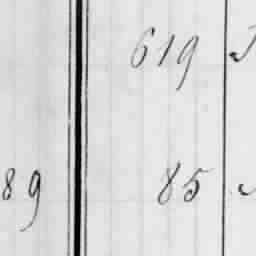 619
89 85